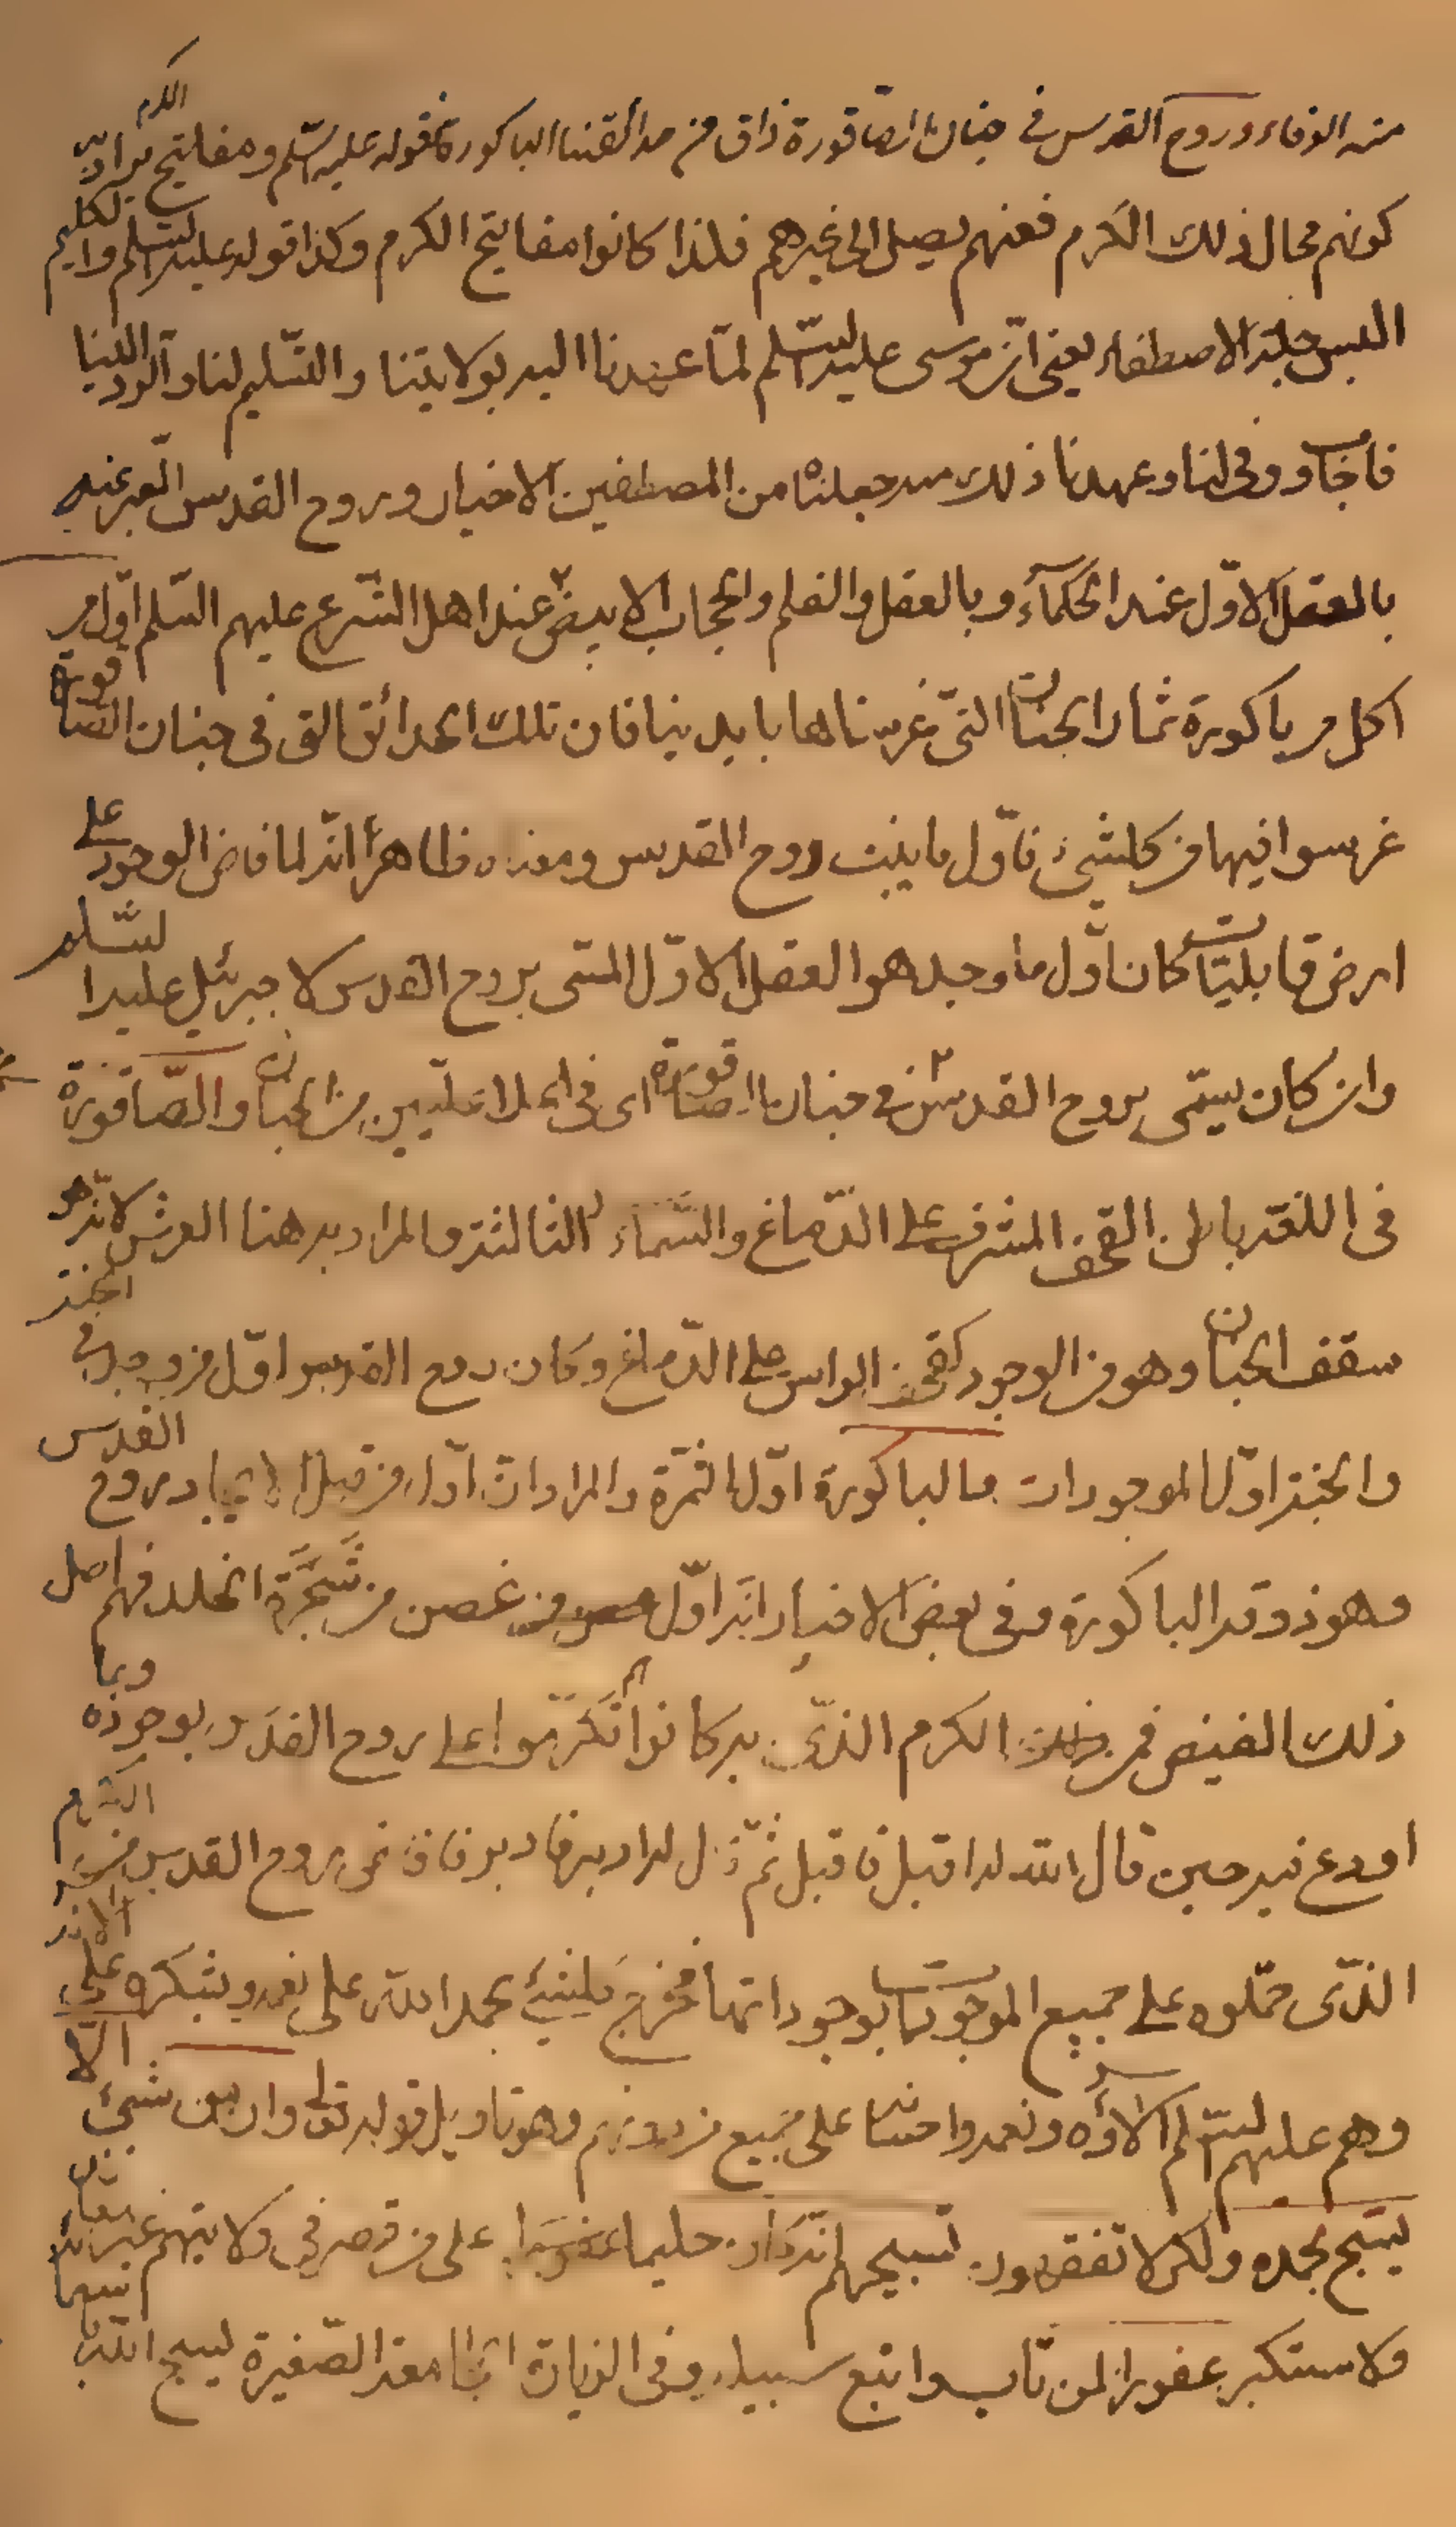 منه الوفاء وروح القدس في جنان الصاقورة ذاق من حدائقنا الباكورة فقوله عليه السّلم ومفاتيح الكرم يراد به
كونهم محال ذلك الكرم فعنهم يصل الى غيرهم فلذا كانوا مفاتيح الكرم وكذا قوله عليه السّلم والكليم
البس حلة الاصطفاء يعني انّ موسى عليه السّلم لمّا عهدنا اليه بولايتنا والتسليم لنا والرد الينا
فاجاب ووفى لنا وعهدنا ذلك منه جعلناه من المصطفين الاخيار وروح القدس المعبر عنه
بالعقل الاوّل عند الحكمآء وبالعقل والقلم والحجاب الابيض عند اهل الشّرع عليهم السّلم اوّل من
اكل من باكورة ثمار الجنان التي غرسناها بايدينا فان تلك الحدائق التي في جنان الصاقورة
غرسوا فيها من كلشيء فاوّل ما نبت روح القدس ومعناه ظاهراً انّه لما فاض الوجود على
ارض قابليات كان اوّل ما وجد هو العقل الاوّل المسمّى بروح القدس لا جبرئيل عليه السّلم
وان كان يسمّى بروح القدس في جنان الصاقورة اى في اعلا علّيين من الجنان والصّاقورة
في اللغة باطن القحف المشرف على الدّماغ والسّماء الثالثة والمراد به هنا العرش لانّه هو
سقف الجنان وهو من الوجود كقحف الراس على الدّماغ وكان روح القدس اوّل من وجد في الجنة
والجنة اوّل الموجودات والباكورة اوّل الثمرة والمراد انّ اوّل من قبل الايجاد روح القدس
وهو ذوقه الباكورة وفي بعض الاخبار انّه اوّل غصن من شجرة الخلد فهم اصل
ذلك الفيض فمن ذلك الكرم الذّى به كانوا تكرّموا على روح القدس بوجوده وبما
اودع فيه حين قال الله له اقبل فاقبل ثمّ قال له ادبر فادبر فافاض روح القدس من الكرم
الذّى حمّلوه على جميع الموجودات بوجوداتها فخرج كلشيئ بحمد الله على نعمه ويشكره على الائه
وهم عليهم السّلم الاؤه ونعمه واحسانه على جميع من دونهم وهو تاويل قوله تعالى وان من شيئ الا
يسبّح بحمده ولكن لا تفقهون تسبيحهم انّه كان حليما غفورا على من قصر في ولايتهم غير معاند
ولا مستكبر غفورا لمن تاب واتبع سبيله وفي الزيارة الجامعة الصّغيرة يسبح الله